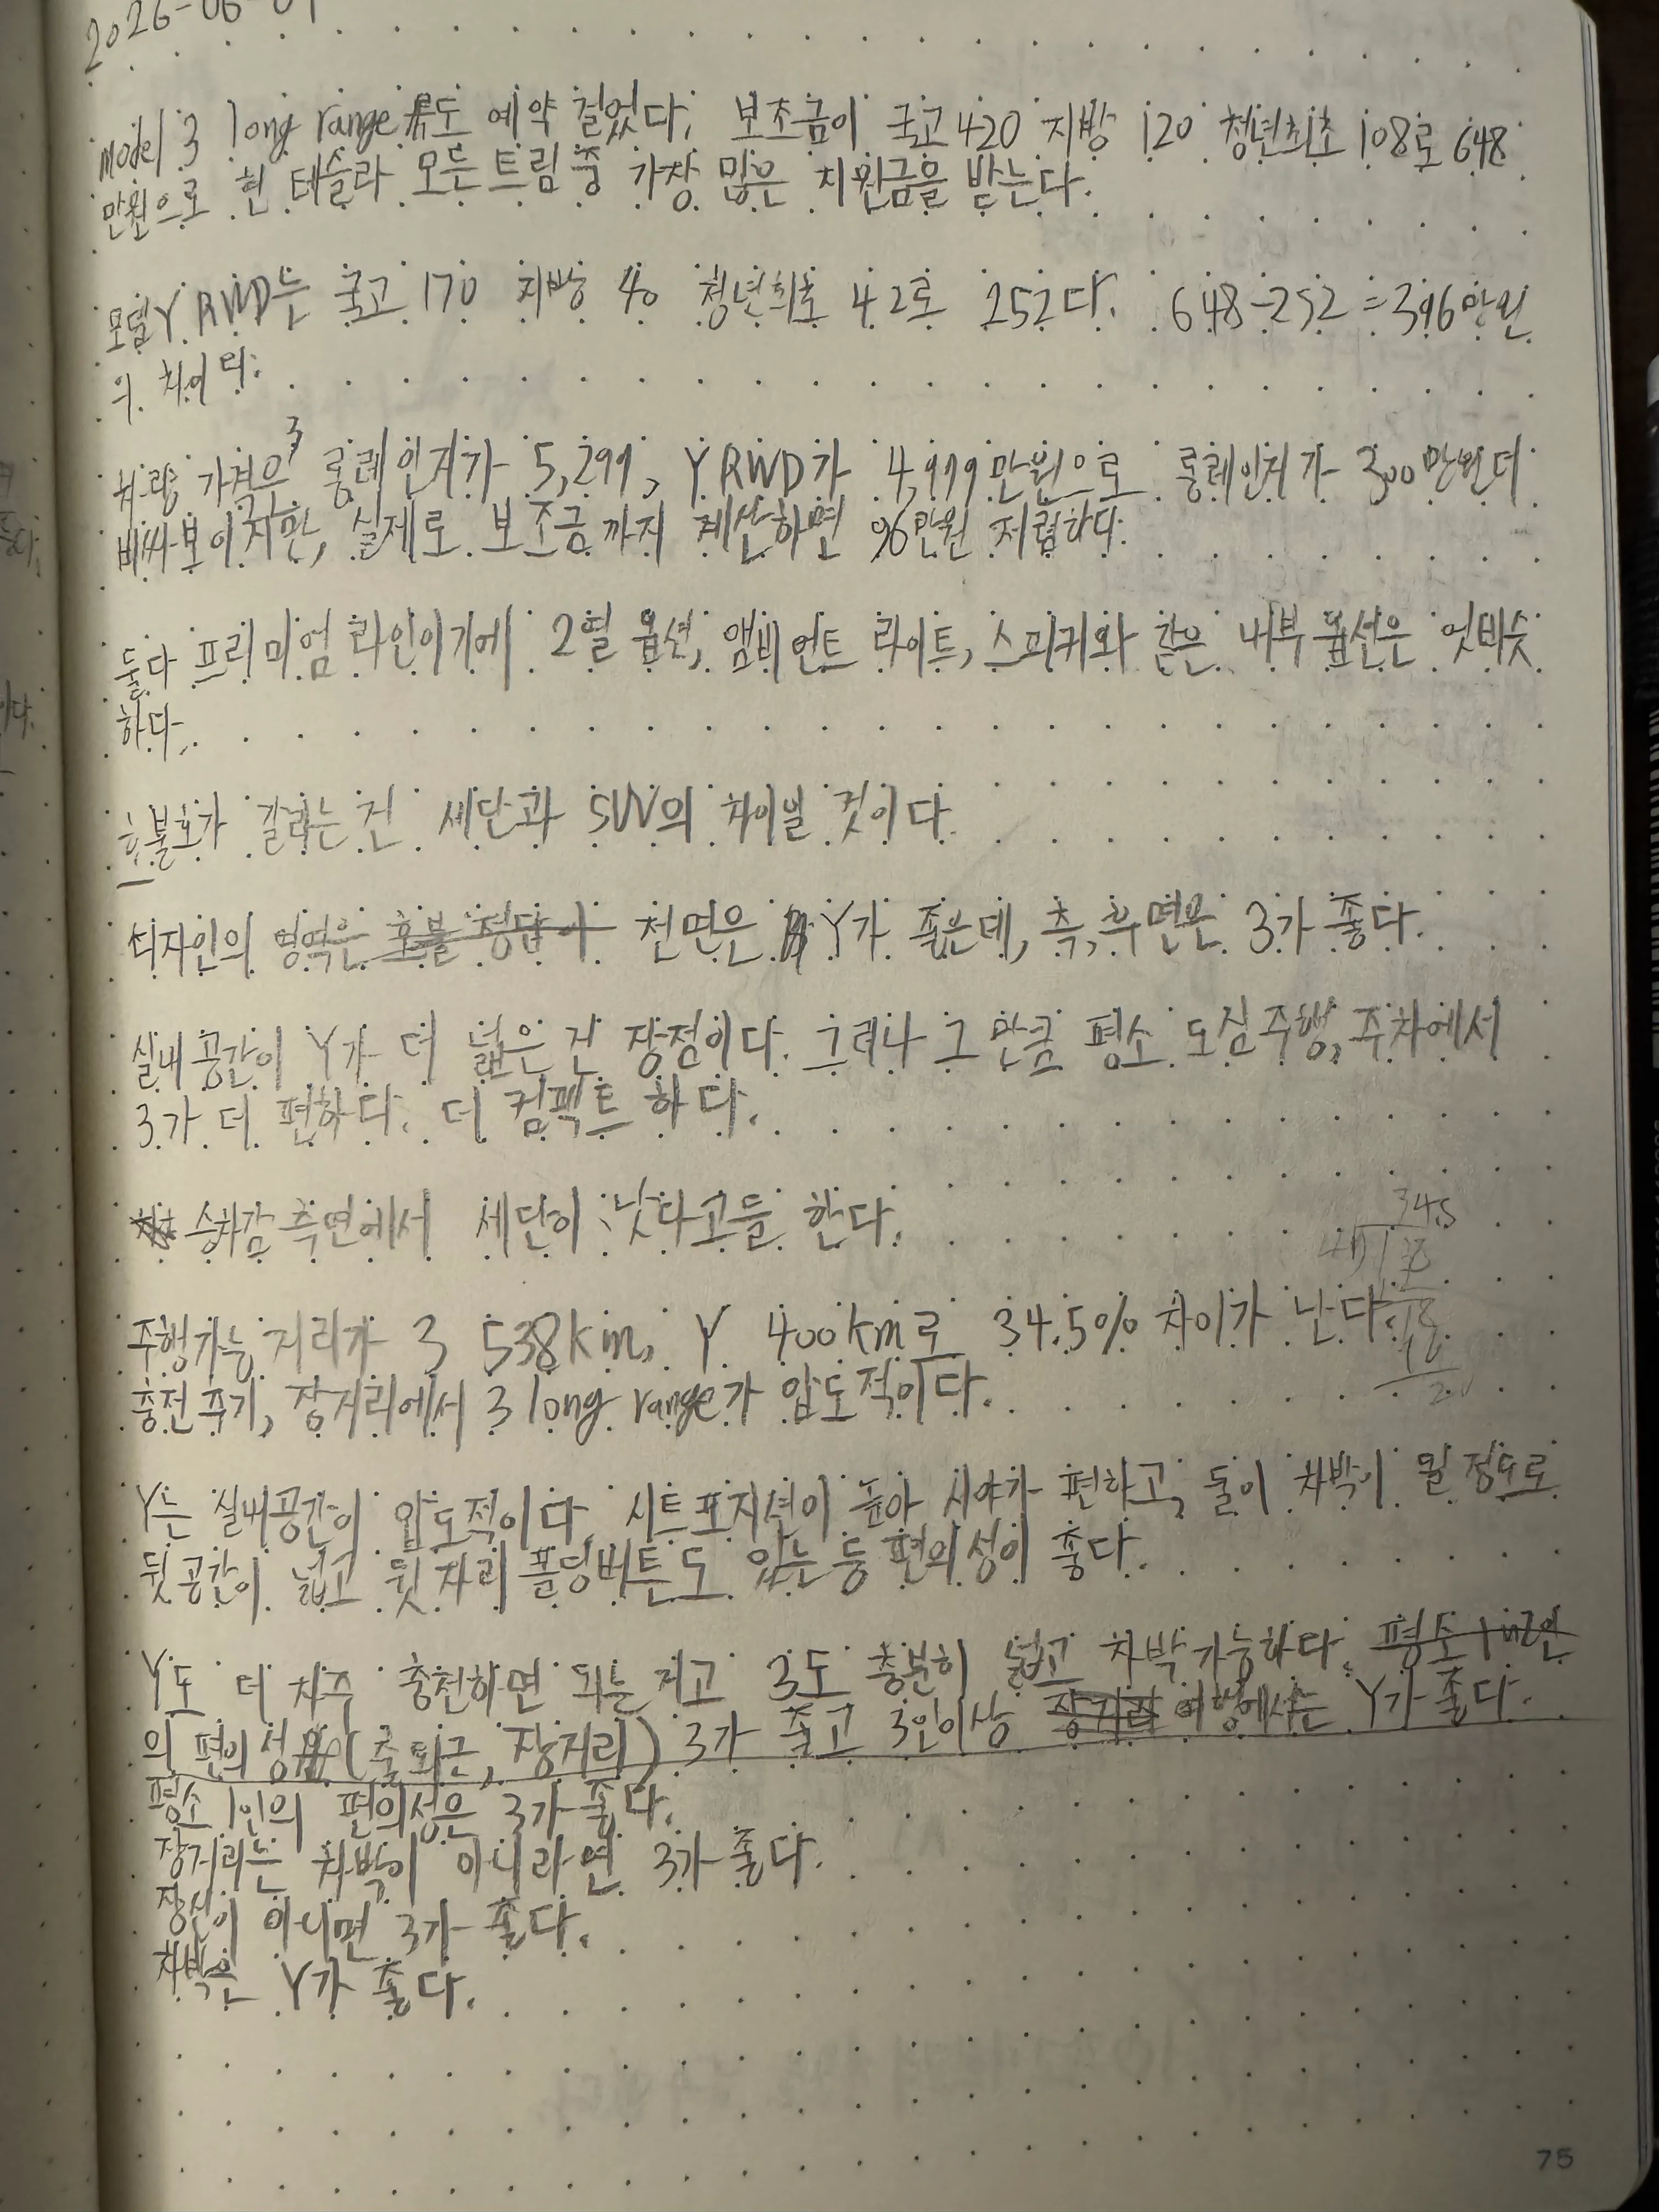 2026-06-01
model 3 long range도 예약 걸었다. 보조금이 국고 420 지방 120 청년최초 108로 648
만원으로 현 테슬라 모든 트림 중 가장 많은 지원금을 받는다.
모델Y RWD는 국고 170 지방 40 청년최초 42로 252다. 648-252=396만원
의 차이다.
차량 가격은 3 롱레인지가 5,299, Y RWD가 4,999만원으로 롱레인지가 300만원 더
비싸보이지만, 실제로 보조금까지 계산하면 96만원 저렴하다.
둘다 프리미엄 라인이기에 2열 옵션, 앰비언트 라이트, 스피커와 같은 내부 옵션은 엇비슷
하다.
호불호가 갈리는 건 세단과 SUV의 차이일 것이다.
디자인의 영역은 호불 정답이 전면은 Y가 좋은데, 측,후면은 3가 좋다.
실내공간이 Y가 더 넓은 건 장점이다. 그러나 그만큼 평소 도심주행, 주차에서
3가 더 편하다. 더 컴팩트 하다.
승차감 측면에서 세단이 낫다고들 한다.
34.5
주행가능 거리가 3 538km, Y 400km로 34.5% 차이가 난다.
충전 주기, 장거리에서 3 long range가 압도적이다.
Y는 실내공간이 압도적이다. 시트포지션이 높아 시야가 편하고, 둘이 차박이 될 정도로
뒷공간이 넓고 뒷자리 폴딩버튼도 있는 등 편의성이 좋다.
Y도 더 자주 충전하면 되는 거고 3도 충분히 넓고 차박 가능하다. 평소 1인
의 편의성 (출퇴근, 장거리) 3가 좋고 3인이상 장거리 여행에서는 Y가 좋다.
평소 1인의 편의성은 3가 좋다.
장거리는 차박이 아니라면 3가 좋다.
장신이 아니면 3가 좋다.
차박은 Y가 좋다.
75